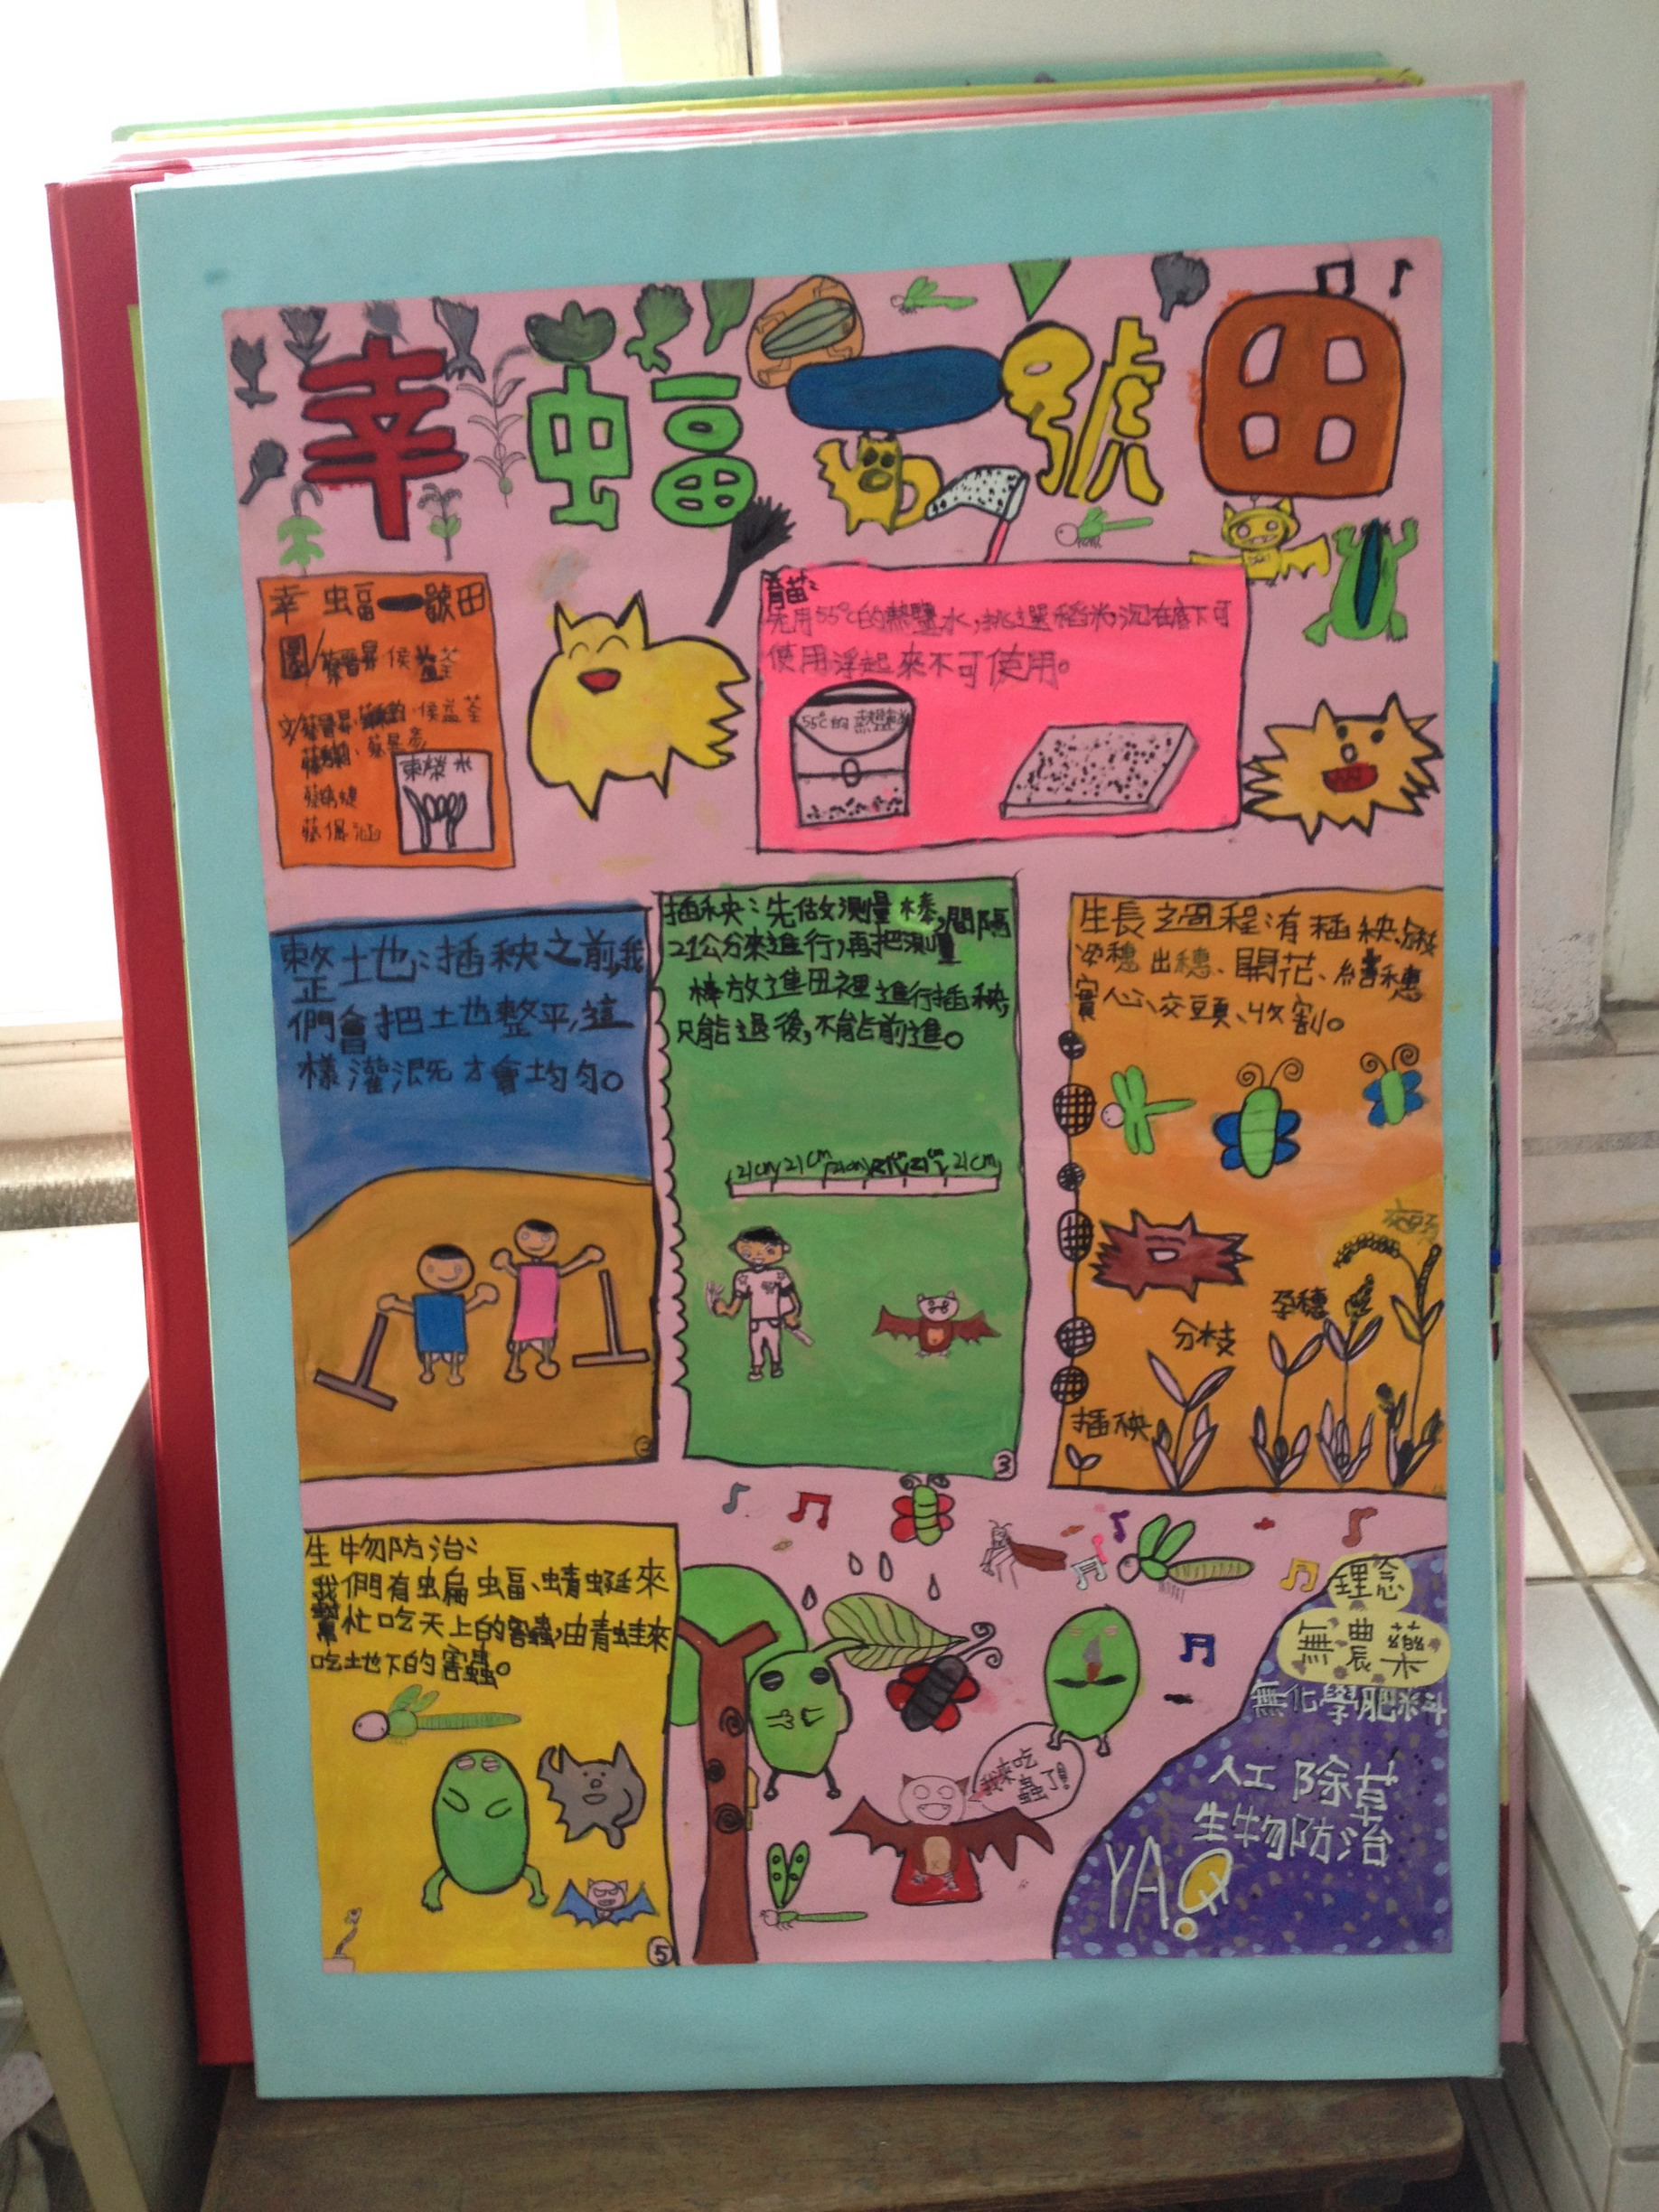 幸蝠一號田
幸蝠一號田
圖/蔡晉昇 侯益荃
侯益荃
蔡佩涵
東榮米
育苗:
先用55°C的熱鹽水,挑選稻米,沉在底下可
使用浮起來不可使用。
55°C的熱鹽水
整土地:插秧之前,我
們會把土地整平,這
樣灌溉才會均勻。
插秧:先做測量棒,間隔
21公分來進行,再把測量
棒放進田裡進行插秧,
只能退後,不能前進。
21cm 21cm 21cm 21cm 21cm 21cm
3
生長之過程:有插秧、分枝
孕穗、出穗、開花、結穗
實心、交頭、收割。
孕穗
分枝
插秧
生物防治:
我們有蝙蝠、蜻蜓來
幫忙吃天上的害蟲,由青蛙來
吃土地下的害蟲。
5
我來吃
蟲了!
理念
無農藥
無化學肥料
人工除草
生物防治
YA!